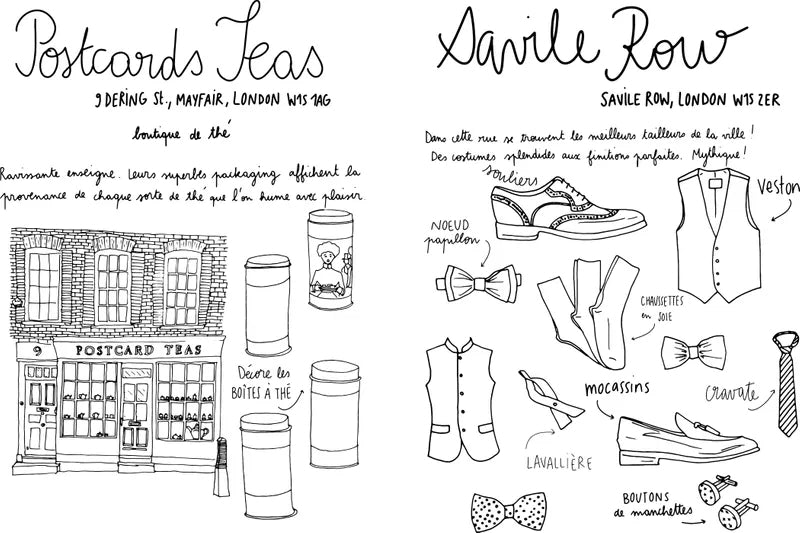 Postcards Teas
9 DERING St., MAYFAIR, LONDON W1S 1AG
boutique de thé
Ravissante enseigne. Leurs superbes packaging affichent la
provenance de chaque sorte de thé que l'on hume avec plaisir.
9 POSTCARD TEAS
Décore les
BOÎTES À THÉ
Savile Row
SAVILE ROW, LONDON W1S 2ER
Dans cette rue se trouvent les meilleurs tailleurs de la ville !
Des costumes splendides aux finitions parfaites. Mythique !
souliers
Veston
NOEUD
papillon
CHAUSSETTES
en SOIE
mocassins
cravate
LAVALLIÈRE
BOUTONS
de manchettes